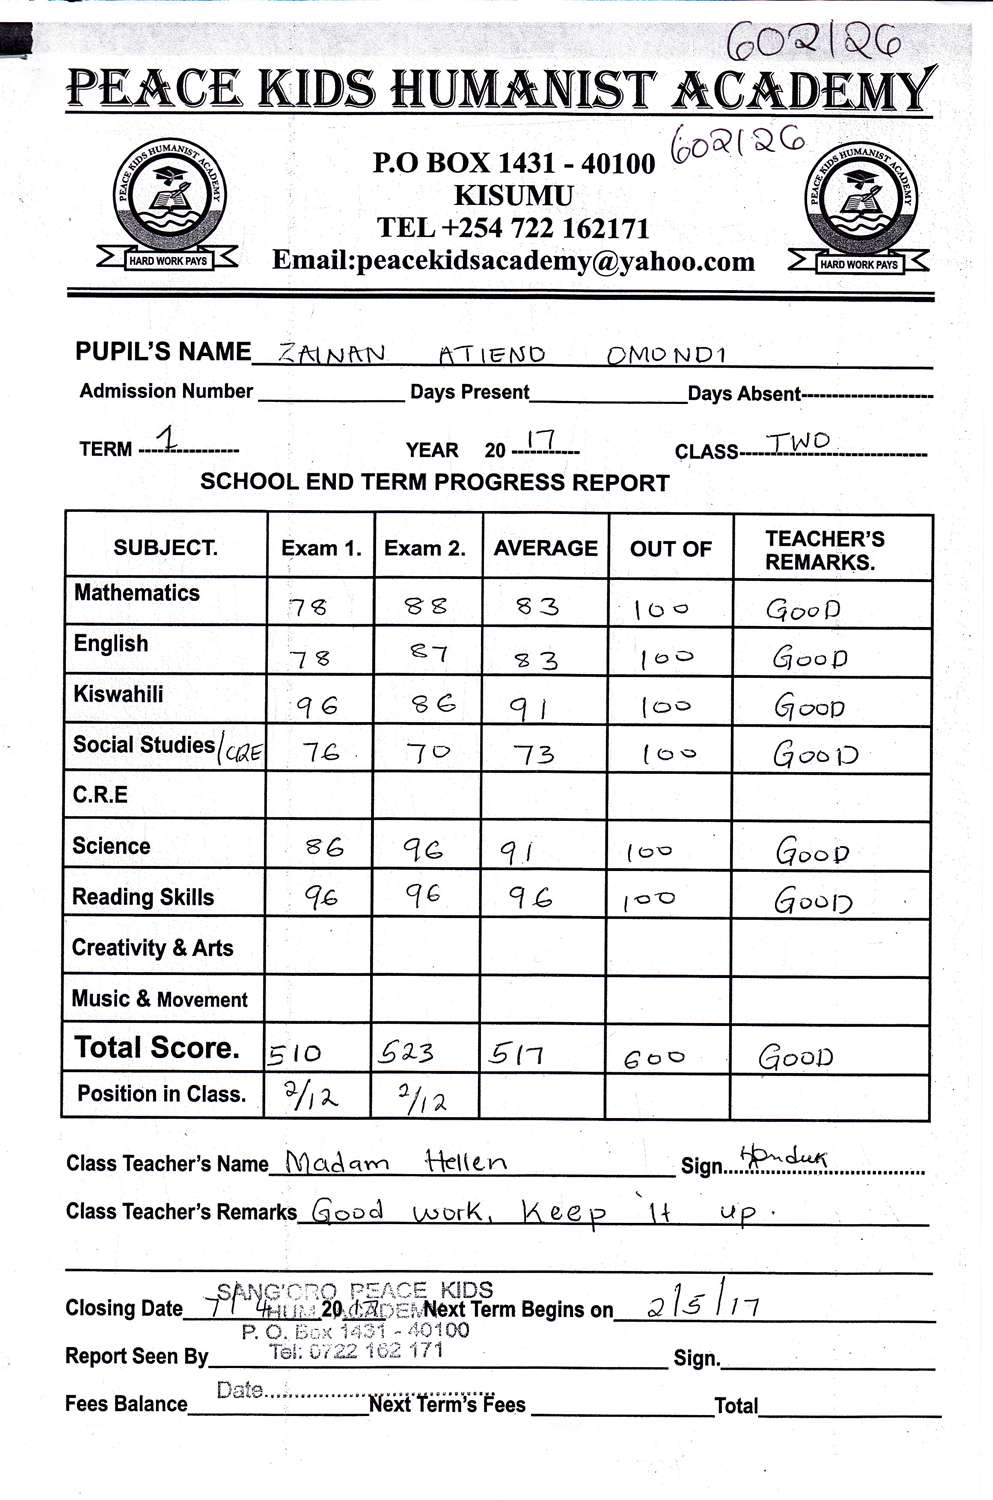 602126
PEACE KIDS HUMANIST ACADEMY
602126
PEACE KIDS HUMANIST ACADEMY
HARD WORK PAYS
P.O BOX 1431 - 40100
KISUMU
TEL +254 722 162171
Email:peacekidsacademy@yahoo.com
PEACE KIDS HUMANIST ACADEMY
HARD WORK PAYS
PUPIL'S NAME ZAINAN ATIENO OMONDI
Admission Number Days Present Days Absent
TERM 1 YEAR 2017 CLASS TWO
SCHOOL END TERM PROGRESS REPORT
SUBJECT. Exam 1. Exam 2. AVERAGE OUT OF TEACHER'S REMARKS.
Mathematics 78 88 83 100 GOOD
English 78 87 83 100 GOOD
Kiswahili 96 86 91 100 GOOD
Social Studies/CRE 76 70 73 100 GOOD
C.R.E
Science 86 96 91 100 GOOD
Reading Skills 96 96 96 100 GOOD
Creativity & Arts
Music & Movement
Total Score. 510 523 517 600 GOOD
Position in Class. 2/12 2/12
Class Teacher's Name Madam Hellen Sign....
Class Teacher's Remarks Good work, Keep it up.
SANG'ORO PEACE KIDS
Closing Date 7/4 2017 Next Term Begins on 2/5/17
P. O. Box 1431 - 40100
Report Seen By Tel: 0722 162 171 Sign.
Date
Fees Balance Next Term's Fees Total